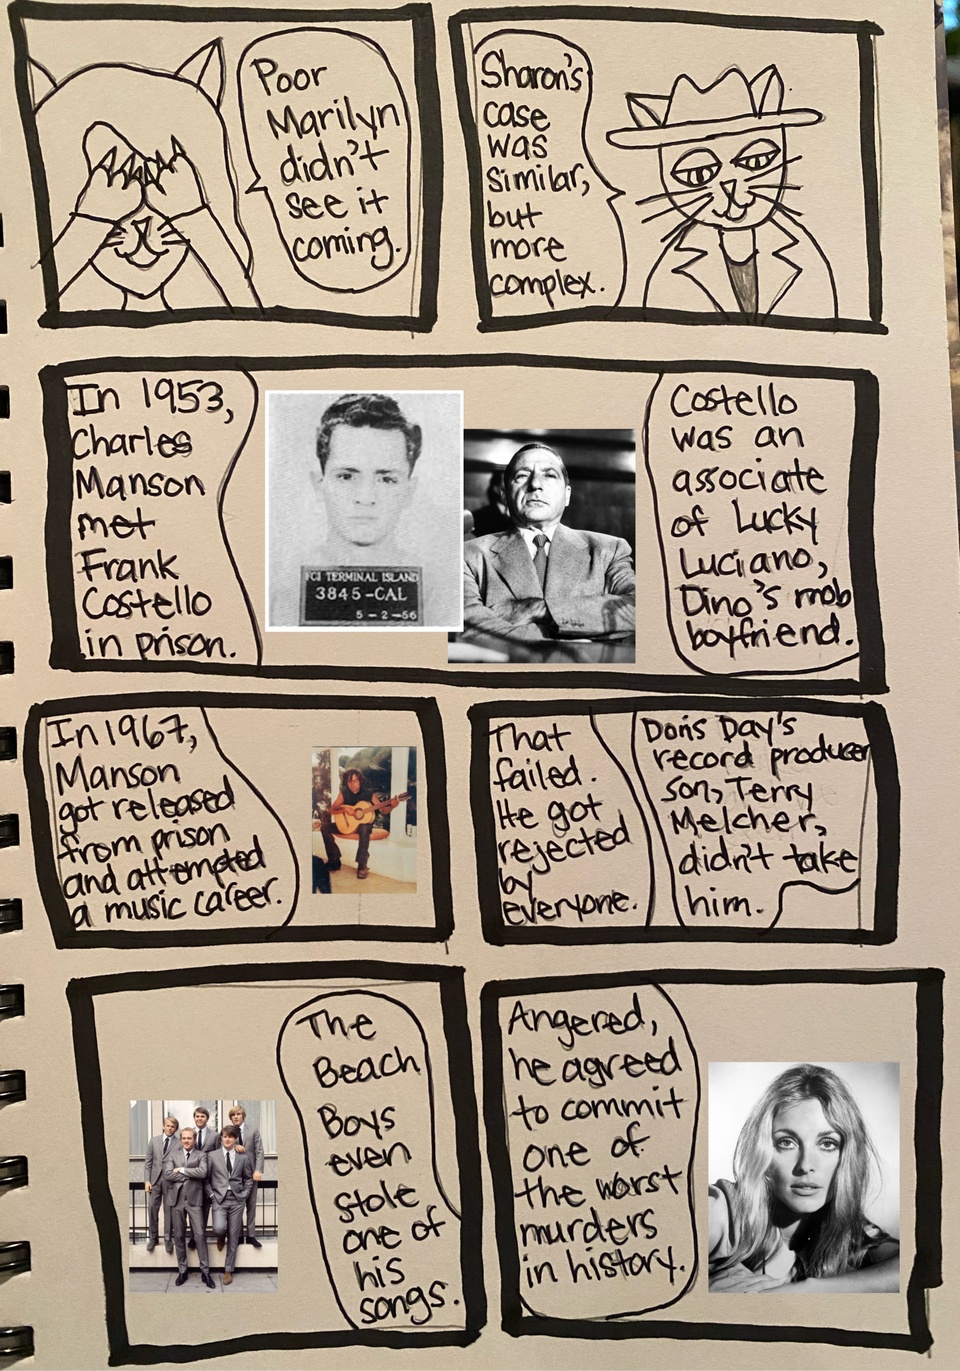 Poor
Marilyn
didn't
see it
coming.
Sharon's
case
was
similar,
but
more
complex.
In 1953,
Charles
Manson
met
Frank
Costello
in prison.
FCI TERMINAL ISLAND
3845-CAL
5-2-56
Costello
was an
associate
of Lucky
Luciano,
Dino's mob
boyfriend.
In 1967,
Manson
got released
from prison
and attempted
a music career.
That
failed.
He got
rejected
by
everyone.
Doris Day's
record producer
son, Terry
Melcher,
didn't take
him.
The
Beach
Boys
even
stole
one of
his
songs.
Angered,
he agreed
to commit
one of
the worst
murders
in history.